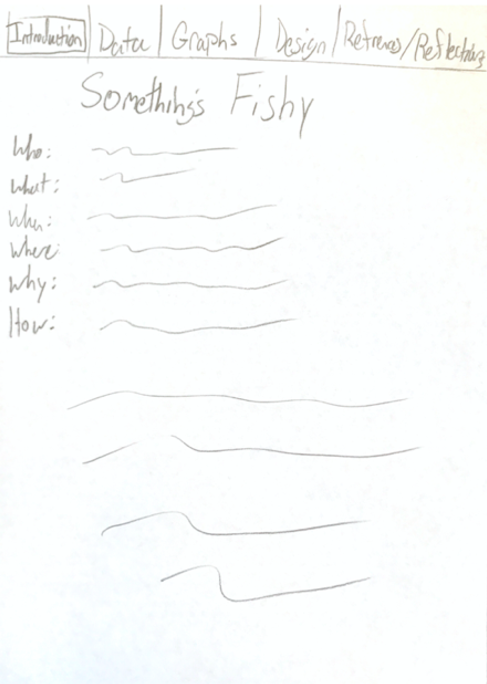 Introduction | Data | Graphs | Design | Refrences/Reflections
Something's Fishy
Who:
What:
When:
Where:
Why:
How: